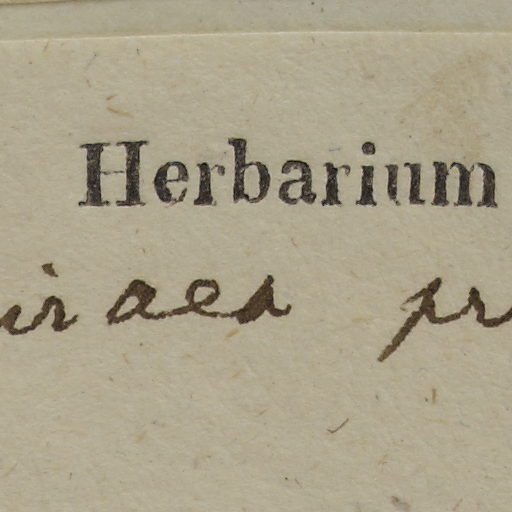 Herbarium
iraea pr